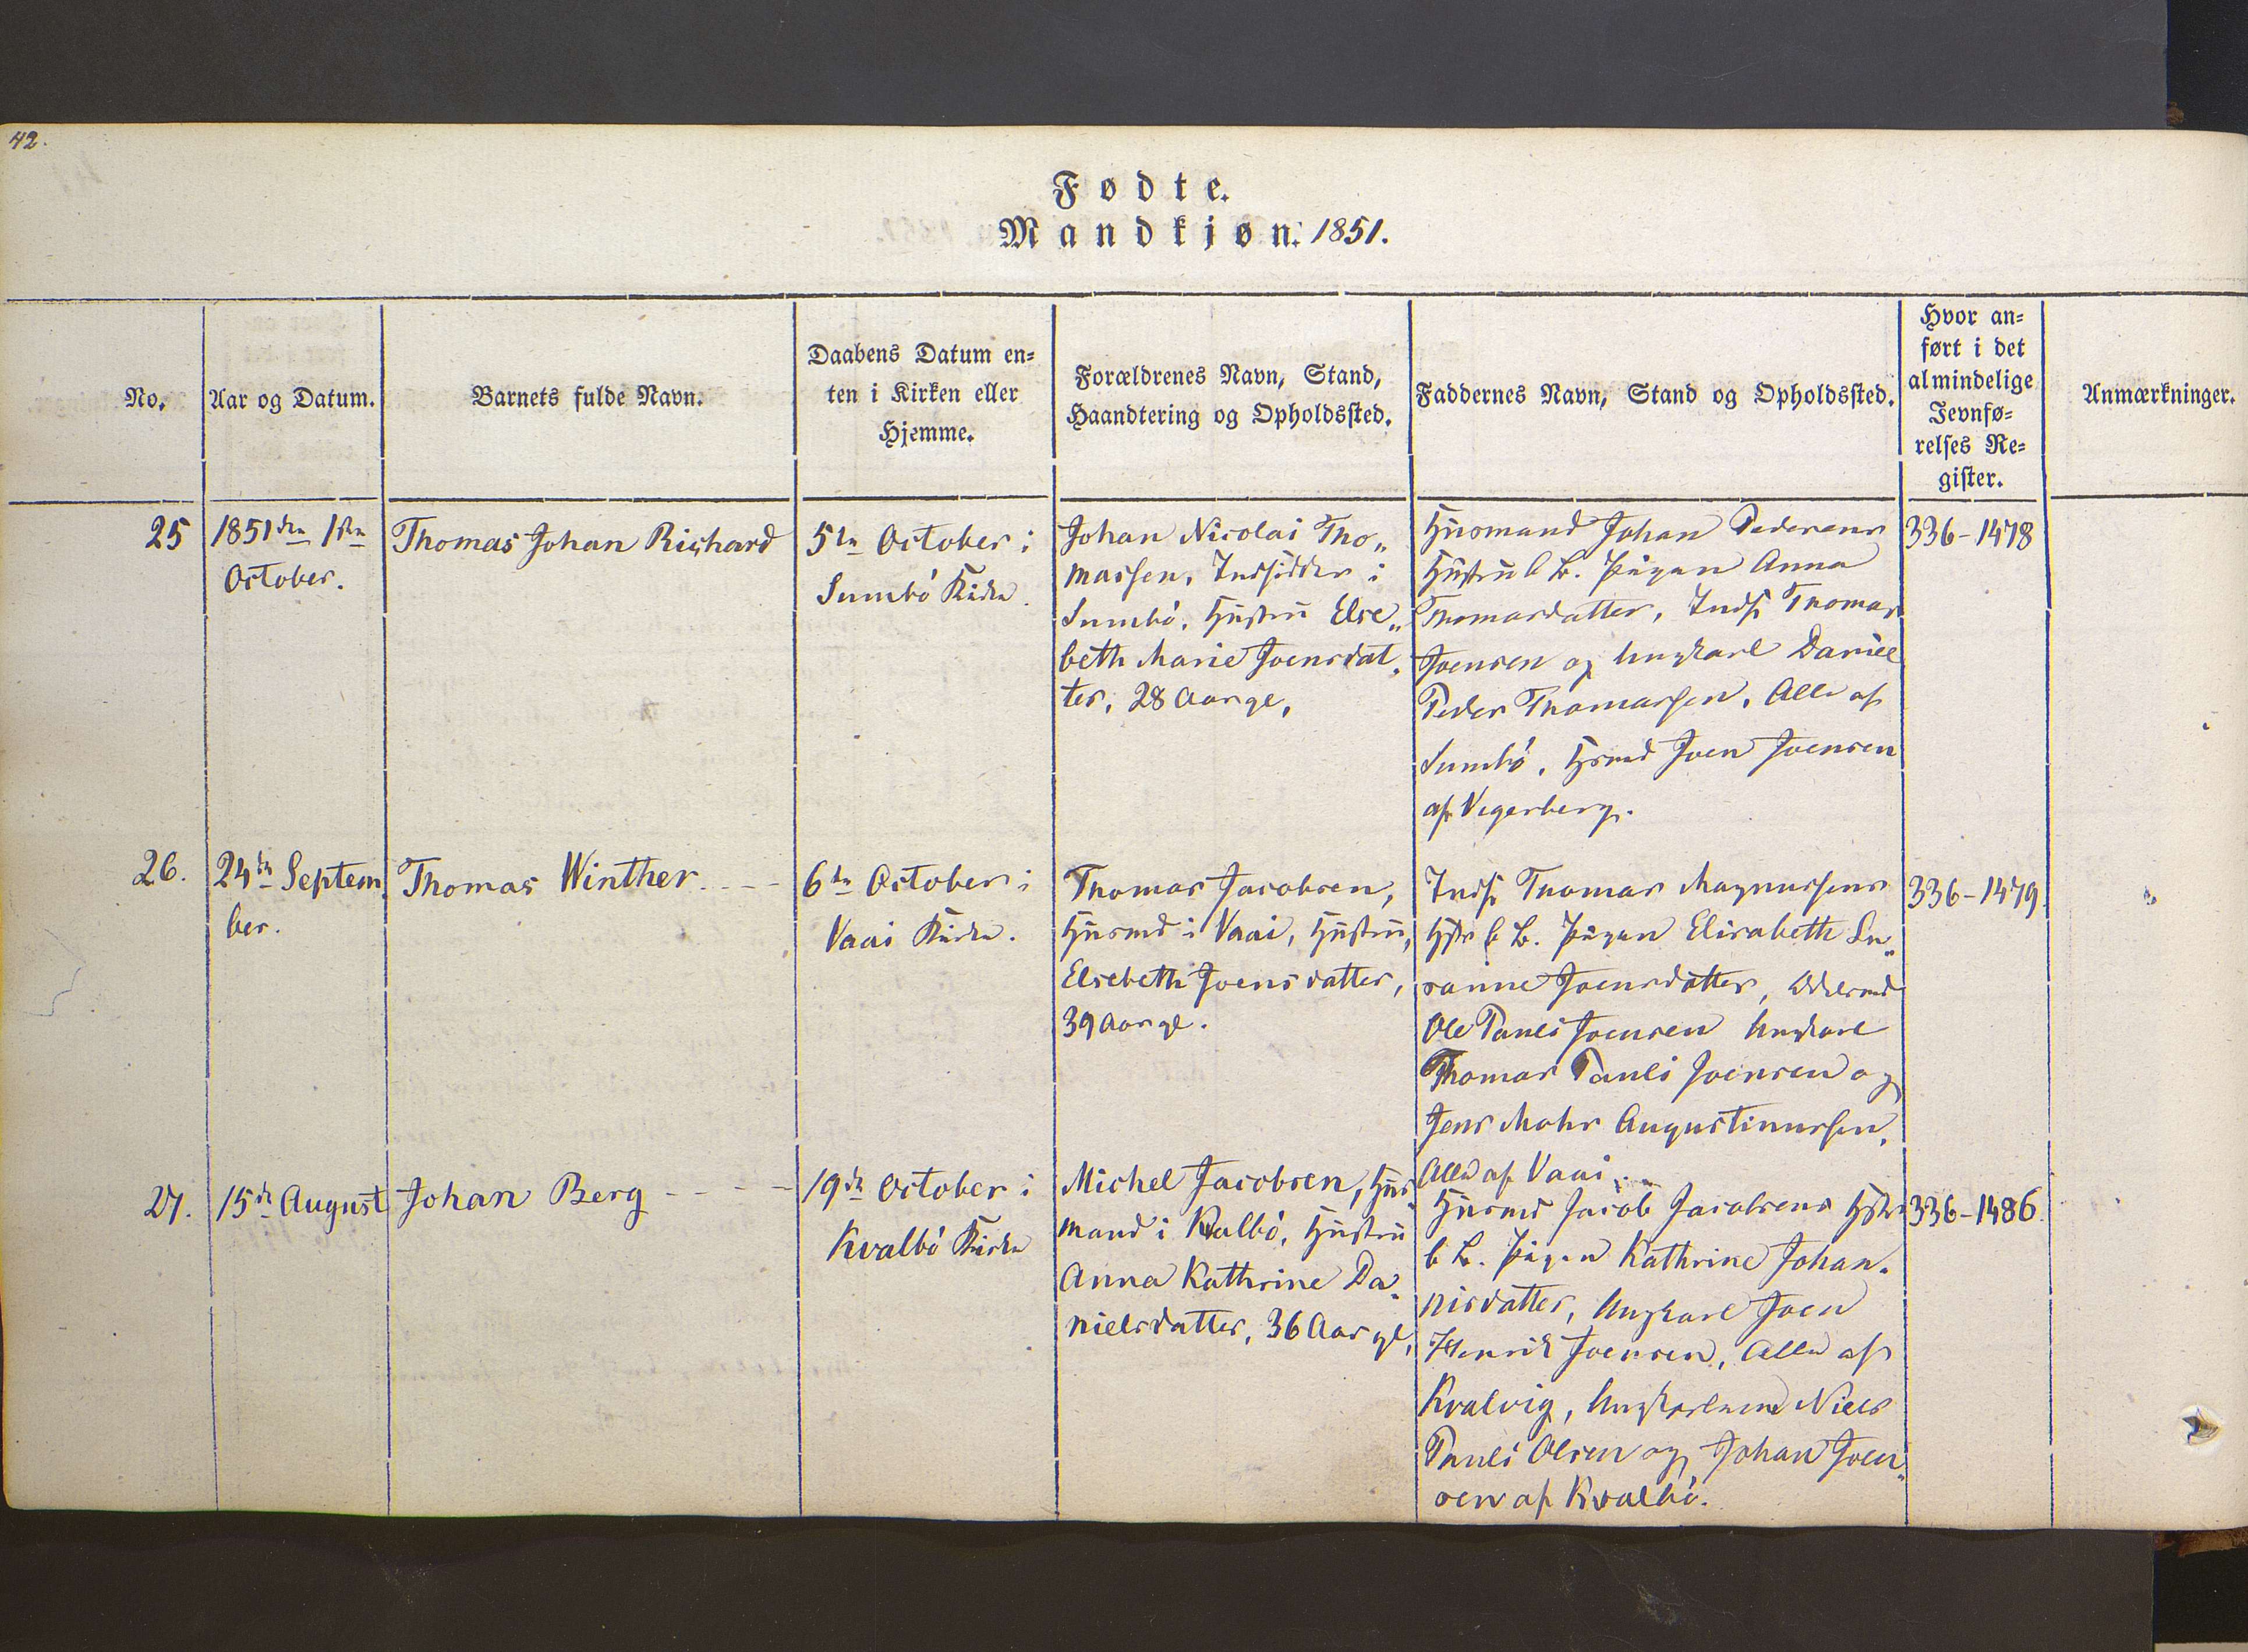 42.
Fødte.
Mandkjøn. 1851.
No.
Aar og Datum.
Barnets fulde Navn.
Daabens Datum en-
ten i Kirken eller
Hjemme.
Forældrenes Navn, Stand,
Haandtering og Opholdssted.
Faddernes Navn, Stand og Opholdssted.
Hvor an-
ført i det
almindelige
Jevnfø-
relses Re-
gister.
Anmærkninger.
25
1851 den 1ste
October.
Thomas Johan Richard
5te October i
Sumbø Kirke.
Johan Nicolai Tho„
massen, Indsidder i
Sumbø, Hustru Else„
beth Marie Joensdat„
ter, 28 Aar gl,
Husmand Johan Pedersens
Hustru b. B. Pigen Anna
Thomasdatter, Inds Thomas
Joensen og Ungkarl Daniel
Peder Thomassen, Alle af
Sumbø, Hsmd Joen Joensen
af Vegerberg.
336-1478
26.
24de Septem
ber.
Thomas Winther - - -
6te October i
Vaai Kirke.
Thomas Jacobsen,
Husmd i Vaai, Hustru,
Elsebeth Joensdatter,
39 Aar gl.
Inds Thomas Magnussens
Hstr b B. Pigen Elisabeth Su„
sanne Joensdatter, Odelsmd
Ole Pauli Joensen Ungkarl
Thomas Pauli Joensen og
Jens Mohr Augustinussen,
Alle af Vaai.
336-1479.
27.
15de August
Johan Berg - - - -
19de October i
Kvalbø Kirke
Michel Jacobsen, Hus
mand i Kvalbø, Hustru
Anna Kathrine Da„
nielsdatter, 36 Aar gl,
Husmd Jacob Jacobsens Hstr
b B. Pigen Kathrine Johan„
nisdatter, Ungkarl Joen
Henrik Joensen, Alle af
Kvalvig, Ungkarlene Niels
Pauli Olsen og Johan Joen„
sen af Kvalbø.
336-1486.